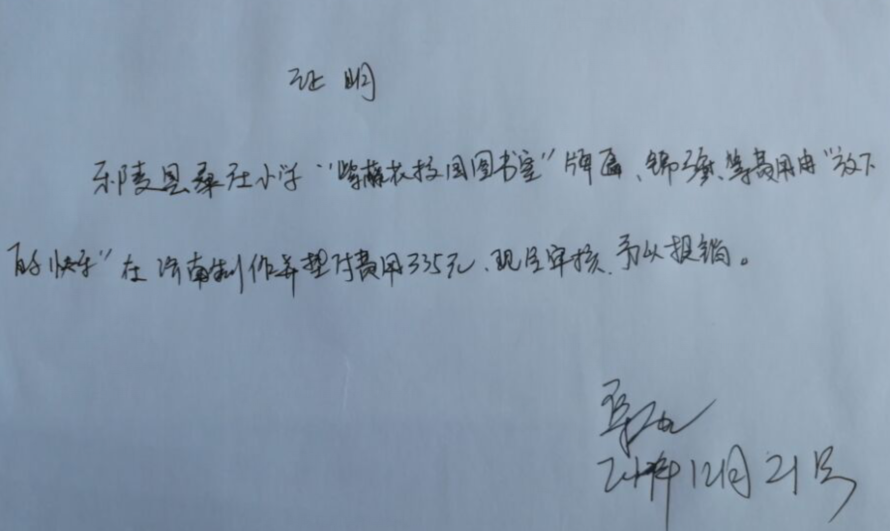 证明
乐陵县桑庄小学“紫藤花校园图书室”牌匾、锦旗、等费用由“放下
的快乐”在济南制作并垫付费用335元、现已审核、予以报销。
年12月21号